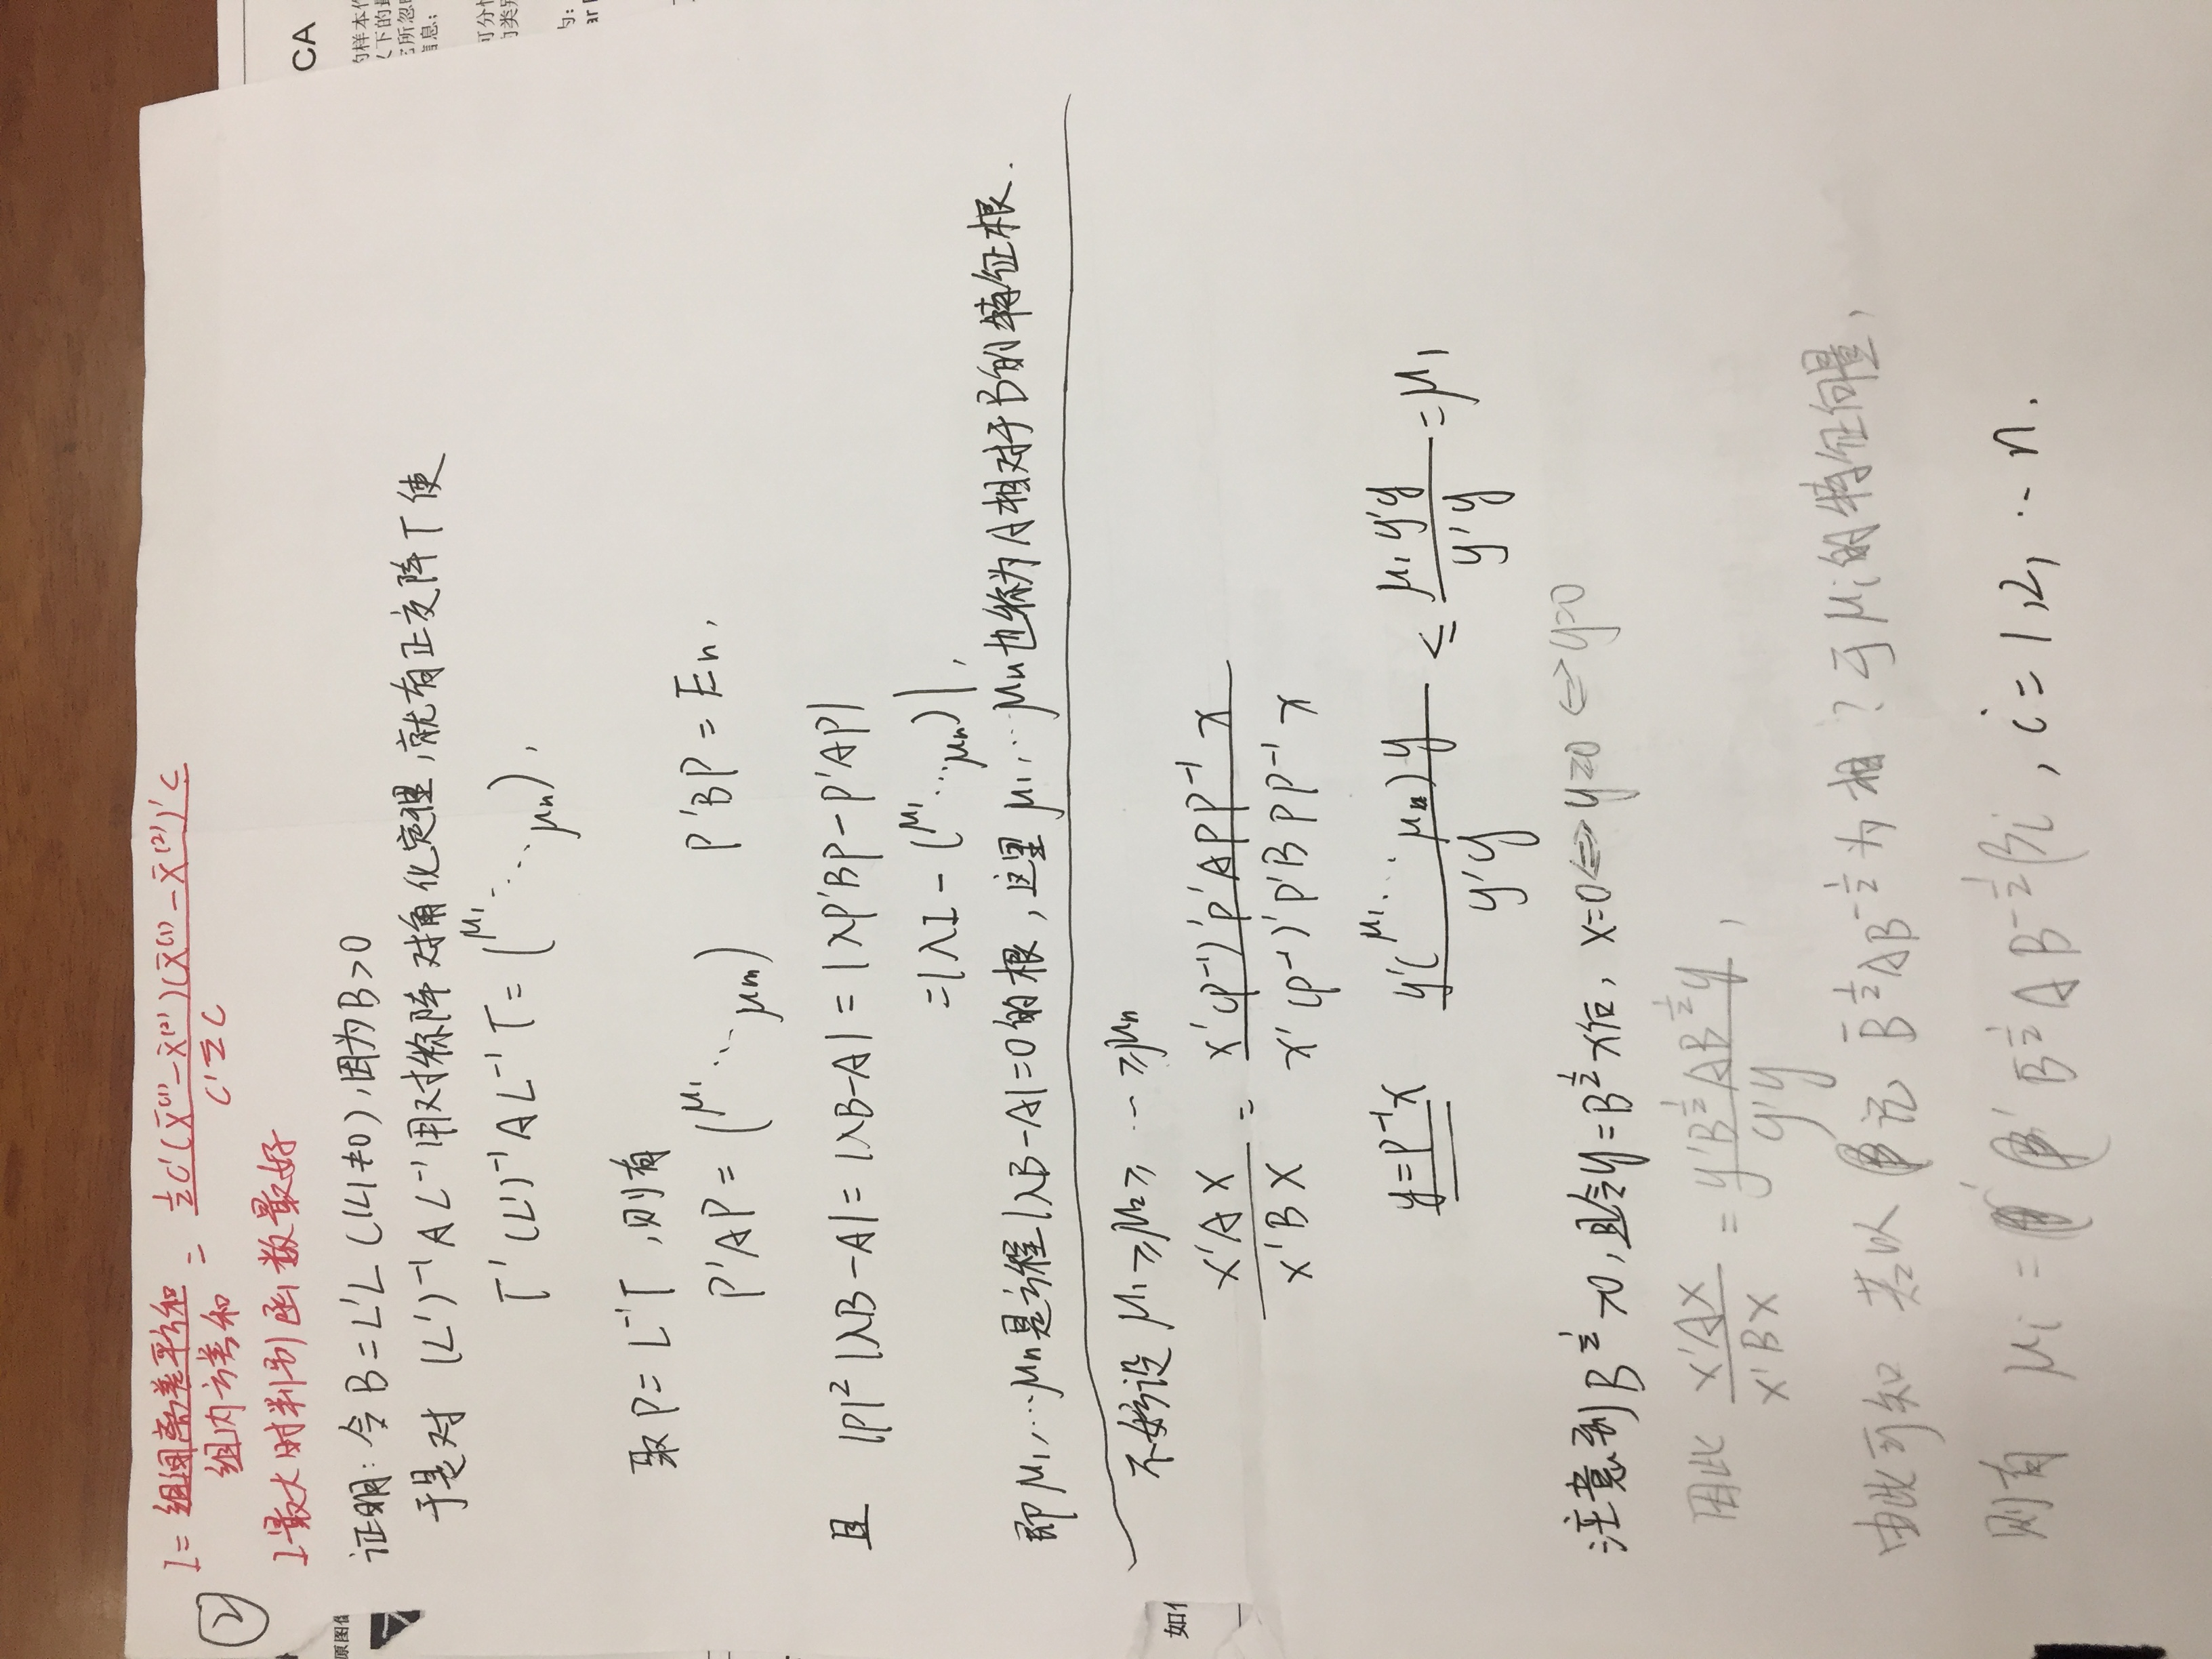 ②
I = 组间离差平方和 / 组内方差和 = ½C'(X̄⁽¹⁾-X̄⁽²⁾)(X̄⁽¹⁾-X̄⁽²⁾)'C / C'ΣC
I最大时判别函数最好
CA
原图像
证明: 令 B = L'L (|L|≠0), 因为 B>0
的样本
义下的最
于是对 (L')⁻¹AL⁻¹ 用对称阵对角化定理, 就有正交阵T使
它所忽略
信息;
T'(L')⁻¹AL⁻¹T = (μ₁ ⋱ μn),
可分性
的类别
为:
取P = L⁻¹T, 则有
P'AP = (μ₁ ⋱ μm) P'BP = En,
且 |P|²|λB-A| = |λB-A| = |λP'BP-P'AP|
= |λI - (μ₁ ⋱ μn)|,
即 μ₁, … μn是方程|λB-A|=0的根, 这里 μ₁, … μn也称为A相对于B的特征根.
不妨设 μ₁ ≥ μ₂ ≥ … ≥ μn
X'AX / X'BX = x'(P⁻¹)'P'APP⁻¹x / x'(P⁻¹)'P'BPP⁻¹x
y=P⁻¹x y'(μ₁ ⋱ μn)y / y'y ≤ μ₁y'y / y'y = μ₁
注意到 B^½ >0, 且令y=B^½x后, x=0⇔y=0 ⇔y=0
因此 X'AX / X'BX = y'B^½AB^½y / y'y,
由此可知 若以 记 B̄^½AB^-½ 为相?于μi的特征向量,
则有 μi = β' B̄^½AB^-½βi, i=1,2, … n.